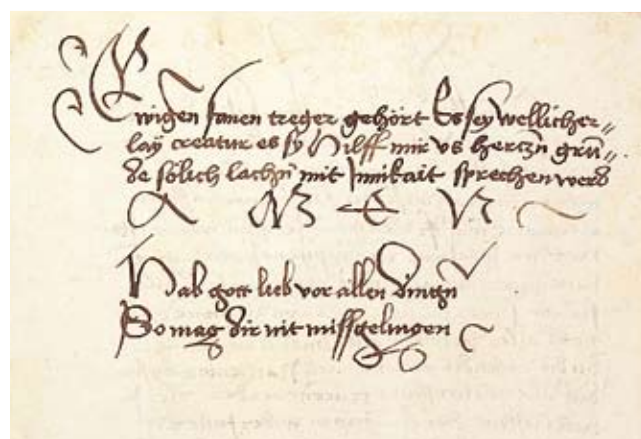 Ewigen samen treger gehört Es sey wellicher„
lay creatur es sy Hilff mir vs herczn grū„
de sölich lachn mit Jnnikait sprechen werd
A M E N
Hab gott lieb vor allen dingn
So mag dir nit missgelingen